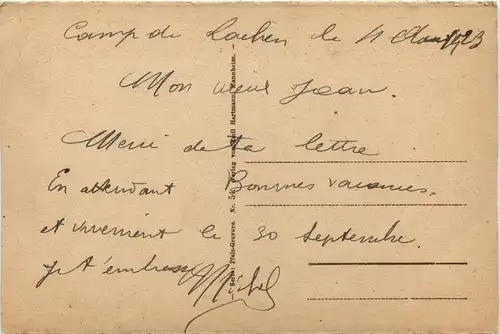 Camp de Lachen le 11 Août 1923
Mon vieux Jean.
Merci de ta lettre
En attendant Bonnes vacances.
et vivement le 30 septembre.
je t'embrasse Michel
Serie: Pfalz-Gravure. Nr. Verlag von Hartmann, Mannheim.